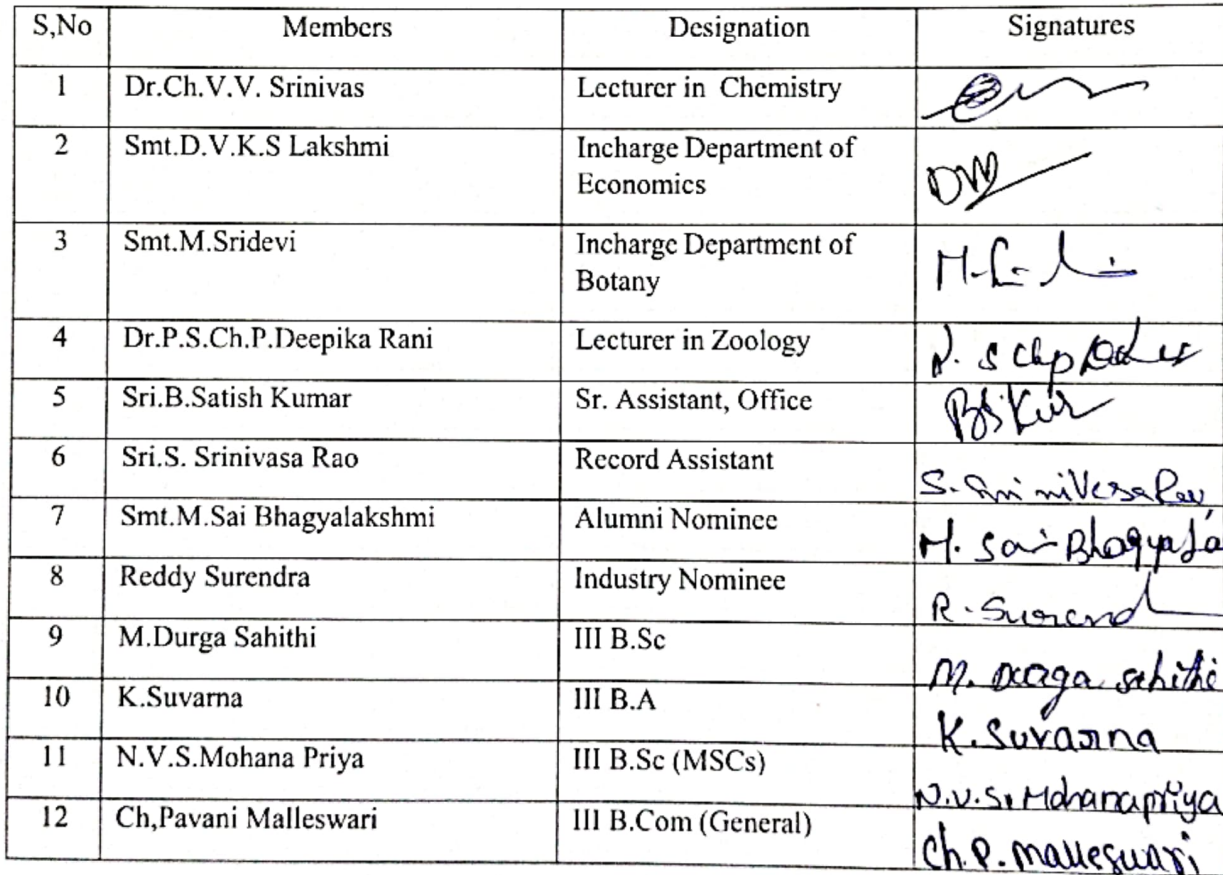 S,No Members Designation Signatures
1 Dr.Ch.V.V. Srinivas Lecturer in Chemistry
2 Smt.D.V.K.S Lakshmi Incharge Department of
Economics
3 Smt.M.Sridevi Incharge Department of
Botany
4 Dr.P.S.Ch.P.Deepika Rani Lecturer in Zoology
5 Sri.B.Satish Kumar Sr. Assistant, Office
6 Sri.S. Srinivasa Rao Record Assistant
7 Smt.M.Sai Bhagyalakshmi Alumni Nominee M. Sai Bhagyala
8 Reddy Surendra Industry Nominee R. Surend
9 M.Durga Sahithi III B.Sc M. Durga sahithi
10 K.Suvarna III B.A K. Suvarna
11 N.V.S.Mohana Priya III B.Sc (MSCs) N.V.S. Mohanapriya
12 Ch,Pavani Malleswari III B.Com (General) Ch. P. Malleswari